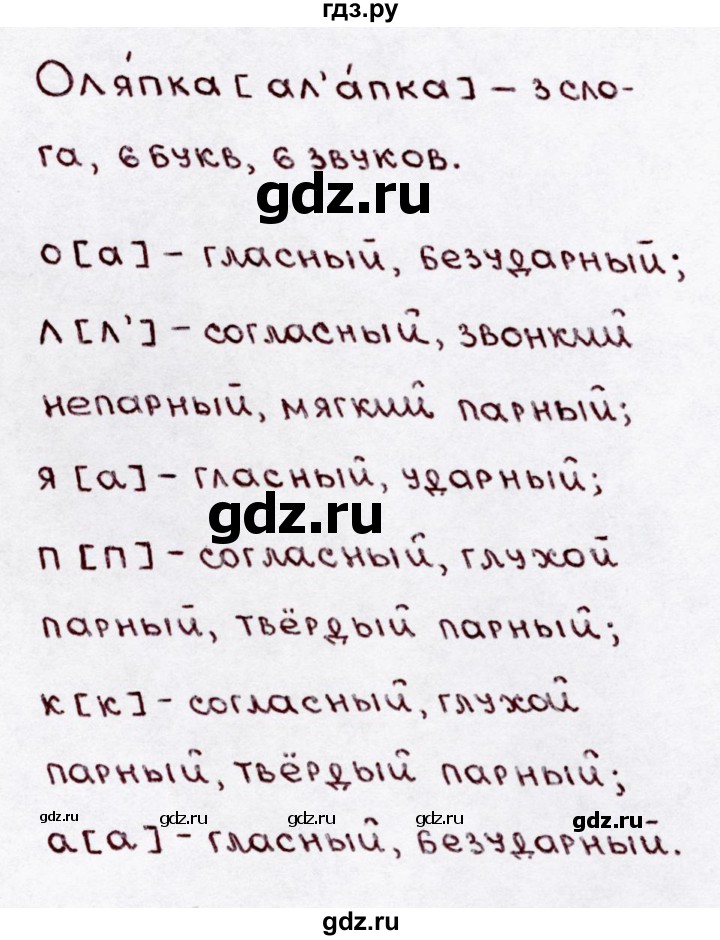 гдз.ру
Оля́пка [ал'а́пка] – 3 сло-
га, 6 букв, 6 звуков.
gdz.ru
о [а] – гласный, безударный;
л [л'] – согласный, звонкий
непарный, мягкий парный;
я [а] – гласный, ударный;
gdz.ru
п [п] – согласный, глухой
парный, твёрдый парный;
к [к] – согласный, глухой
парный, твёрдый парный;
gdz.ru gdz.ru gdz.ru gdz.ru gdz.ru
а [а] – гласный, безударный.
gdz.ru